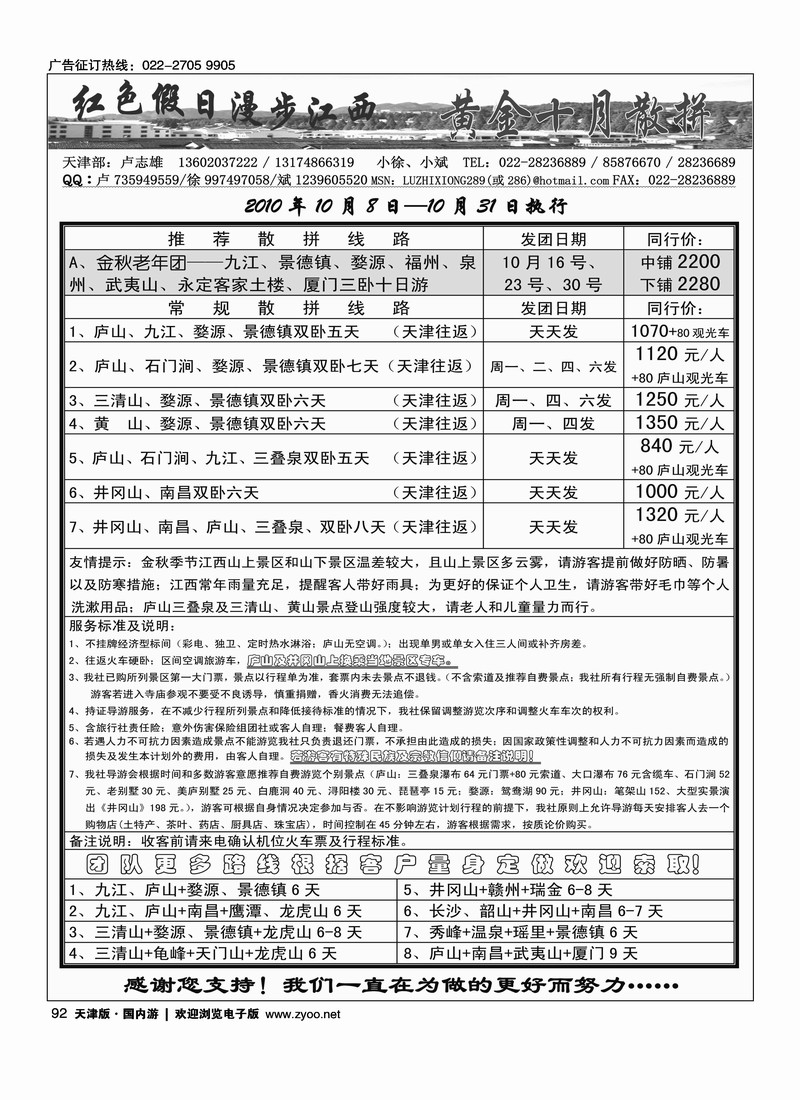 广告征订热线：022-2705 9905
红色假日漫步江西 黄金十月散拼
天津部：卢志雄 13602037222 / 13174866319 小徐、小斌 TEL：022-28236889 / 85876670 / 28236689
QQ：卢 735949559/徐 997497058/斌 1239605520 MSN：LUZHIXIONG289(或 286)@hotmail.com FAX：022-28236889
2010 年 10 月 8 日—10 月 31 日执行
推荐散拼线路 发团日期 同行价：
A、金秋老年团——九江、景德镇、婺源、福州、泉 10 月 16 号、 中铺 2200
州、武夷山、永定客家土楼、厦门三卧十日游 23 号、30 号 下铺 2280
常规散拼线路 发团日期 同行价：
1、庐山、九江、婺源、景德镇双卧五天 （天津往返） 天天发 1070+80 观光车
2、庐山、石门涧、婺源、景德镇双卧七天（天津往返） 周一、二、四、六发 1120 元/人
+80 庐山观光车
3、三清山、婺源、景德镇双卧六天 （天津往返） 周一、四、六发 1250 元/人
4、黄 山、婺源、景德镇双卧六天 （天津往返） 周一、四发 1350 元/人
5、庐山、石门涧、九江、三叠泉双卧五天 （天津往返） 天天发 840 元/人
+80 庐山观光车
6、井冈山、南昌双卧六天 （天津往返） 天天发 1000 元/人
7、井冈山、南昌、庐山、三叠泉、双卧八天（天津往返） 天天发 1320 元/人
+80 庐山观光车
友情提示：金秋季节江西山上景区和山下景区温差较大，且山上景区多云雾，请游客提前做好防晒、防暑
以及防寒措施；江西常年雨量充足，提醒客人带好雨具；为更好的保证个人卫生，请游客带好毛巾等个人
洗漱用品；庐山三叠泉及三清山、黄山景点登山强度较大，请老人和儿童量力而行。
服务标准及说明：
1、不挂牌经济型标间（彩电、独卫、定时热水淋浴；庐山无空调。）；出现单男或单女入住三人间或补齐房差。
2、往返火车硬卧；区间空调旅游车，庐山及井冈山上换乘当地景区专车。
3、我社已购所列景区第一大门票，景点以行程单为准，套票内未去景点不退钱。（不含索道及推荐自费景点；我社所有行程无强制自费景点。）
游客若进入寺庙参观不要受不良诱导，慎重捐赠，香火消费无法追偿。
4、持证导游服务，在不减少行程所列景点和降低接待标准的情况下，我社保留调整游览次序和调整火车车次的权利。
5、含旅行社责任险；意外伤害保险组团社或客人自理；餐费客人自理。
6、若遇人力不可抗力因素造成景点不能游览我社只负责退还门票，不承担由此造成的损失；因国家政策性调整和人力不可抗力因素而造成的
损失及发生本计划外的费用，由客人自理。旁游客有特殊民族及宗教信仰请备注说明！
7、我社导游会根据时间和多数游客意愿推荐自费游览个别景点（庐山：三叠泉瀑布 64 元门票+80 元索道、大口瀑布 76 元含缆车、石门涧 52
元、老别墅 30 元、美庐别墅 25 元、白鹿洞 40 元、浔阳楼 30 元、琵琶亭 15 元；婺源：鸳鸯湖 90 元；井冈山：笔架山 152、大型实景演
出《井冈山》198 元。），游客可根据自身情况决定参与否。在不影响游览计划行程的前提下，我社原则上允许导游每天安排客人去一个
购物店(土特产、茶叶、药店、厨具店、珠宝店)，时间控制在 45 分钟左右，游客根据需求，按质论价购买。
备注说明：收客前请来电确认机位火车票及行程标准。
团队更多路线根据客户量身定做欢迎索取！
1、九江、庐山+婺源、景德镇 6 天 5、井冈山+赣州+瑞金 6-8 天
2、九江、庐山+南昌+鹰潭、龙虎山 6 天 6、长沙、韶山+井冈山+南昌 6-7 天
3、三清山+婺源、景德镇+龙虎山 6-8 天 7、秀峰+温泉+瑶里+景德镇 6 天
4、三清山+龟峰+天门山+龙虎山 6 天 8、庐山+南昌+武夷山+厦门 9 天
感谢您支持！我们一直在为做的更好而努力……
92 天津版·国内游 | 欢迎浏览电子版 www.zyoo.net